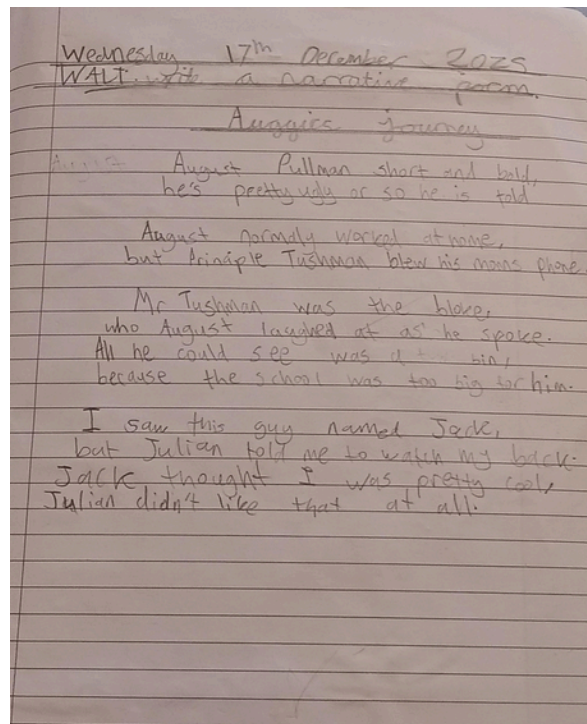 Wednesday 17th December 2025
WALT: write a narrative poem.
Auggies journey
August August Pullman short and bald,
he's pretty ugly or so he is told
August normaly worked at home,
but Principle Tushman blew his moms phone
Mr Tushman was the bloke,
who August laughed at as he spoke.
All he could see was a bin,
because the school was too big for him.
I saw this guy named Jack,
but Julian told me to watch my back.
Jack thought I was pretty cool,
Julian didn't like that at all.